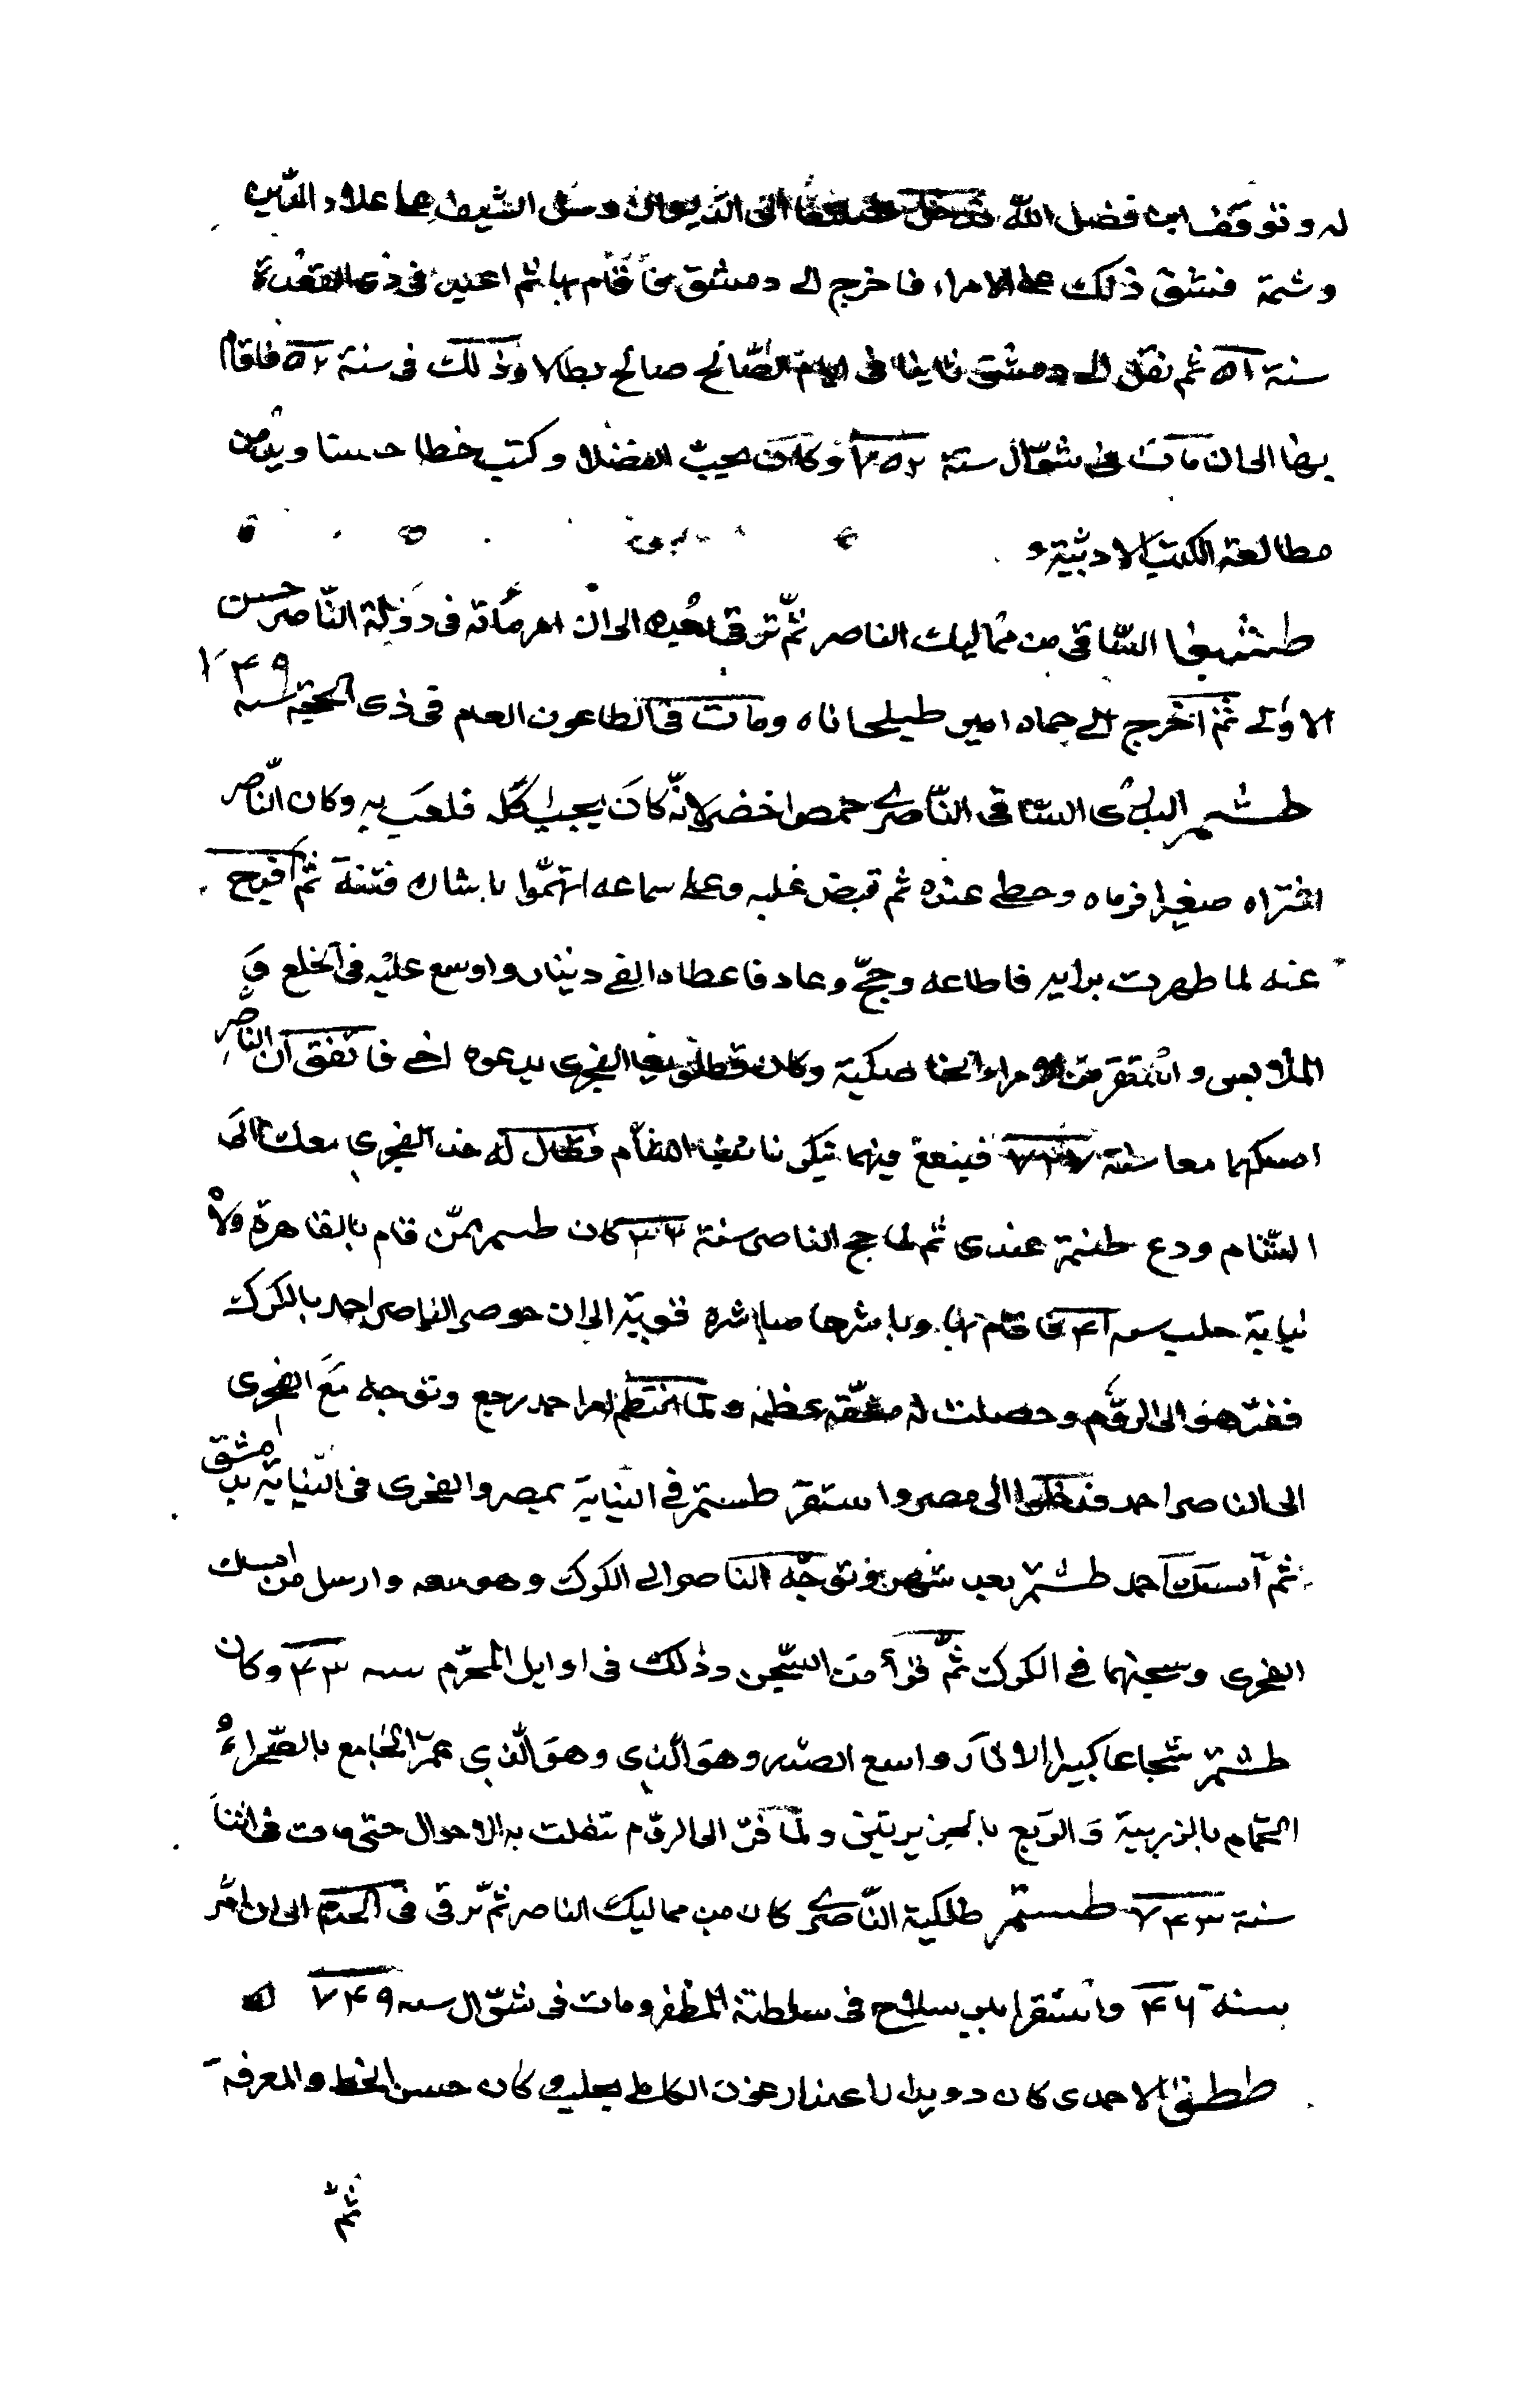 له وتوقف ابن فضل الله فدخل طشبغا الى الديوان وسل السيف على علاء الدين
وشتمه فشق ذلك على الامراء فاخرج الى دمشق فاقام بها ثم اعيد فى ذى القعدة
سنة ٥١ ثم نقل الى دمشق ايضا فى ايام الصالح صالح بطالا وذلك فى سنة ٥٢ فاقام
بها الى ان مات فى شوال سنة ٧٥٢ وكان يحب الفضلا وكتب خطا حسنا ويدمن
مطالعة الكتب الادبية
طشبغا الساقى من مماليك الناصر ثم ترقى بعده الى ان امر مائة فى دولة الناصر حسن
الاولى ثم اخرج الى حماه امير طبلخاناه ومات فى الطاعون العام فى ذى الحجة سنة ٧٤٩
طشتمر البدرى الساقى الناصرى حمص اخضر لانه كان يحب اكله فلقب به وكان الناصر
اشتراه صغيرا فرباه وحظى عنده ثم قبض عليه وعلى جماعه اتهموا باشارة فتنة ثم افرج
عنه لما ظهرت براته فاطاعه وحج وعاد فاعطاه الفى دينار واوسع عليه فى الخلع و
الملابس واستقر من الامراء الخاصكية وكان قطلوبغا الفخرى يدعوه اخى فاتفق ان الناصر
امسكهما معا سنة فشفع فيهما تنكز نائب الشام فقال له خذ الفخرى معك الى
الشام ودع طشتمر عندى ثم لما حج الناصر سنة ٣٢ كان طشتمر ممن قام بالقاهرة وولاه
نيابة حلب سنة ٤١ فاقام بها وباشرها مباشرة قوية الى ان حوصر الناصر احمد بالكرك
ففر هو الى الروم وحصلت له مشقة عظيمه ولما انتظم امر احمد رجع وتوجه مع الفخرى
الى الناصر احمد فدخلوا الى مصر واستقر طشتمر فى النيابة بمصر والفخرى فى النيابة بدمشق
ثم امسك احمد طشتمر بعد شهرين وتوجه الناصر الى الكرك وهو معه وارسل من امسك
الفخرى وسجنهما فى الكرك ثم فرا من السجن وذلك فى اوايل المحرم سنه ٤٣ وكان
طشتمر شجاعا كبير الاثار واسع الصدر وهو الذى وهو الذى عمر الجامع بالصحراء و
الحمام بالزريبة والربع بالحريريين ولما فر الى الروم تنقلت به الاحوال حتى مات فى اثنا
سنة ٧٤٣ طشتمر طلكية الناصرى كان من مماليك الناصر ثم ترقى فى الخدم الى ان امر
سنة ٤٦ واستقر امير سلاح فى سلطنة المظفر ومات فى شوال سنه ٧٤٩
ططق الاحمدى كان دويدارا عند ارغون الكاملى بحلب وكان حسن الخط والمعرفة
ثم